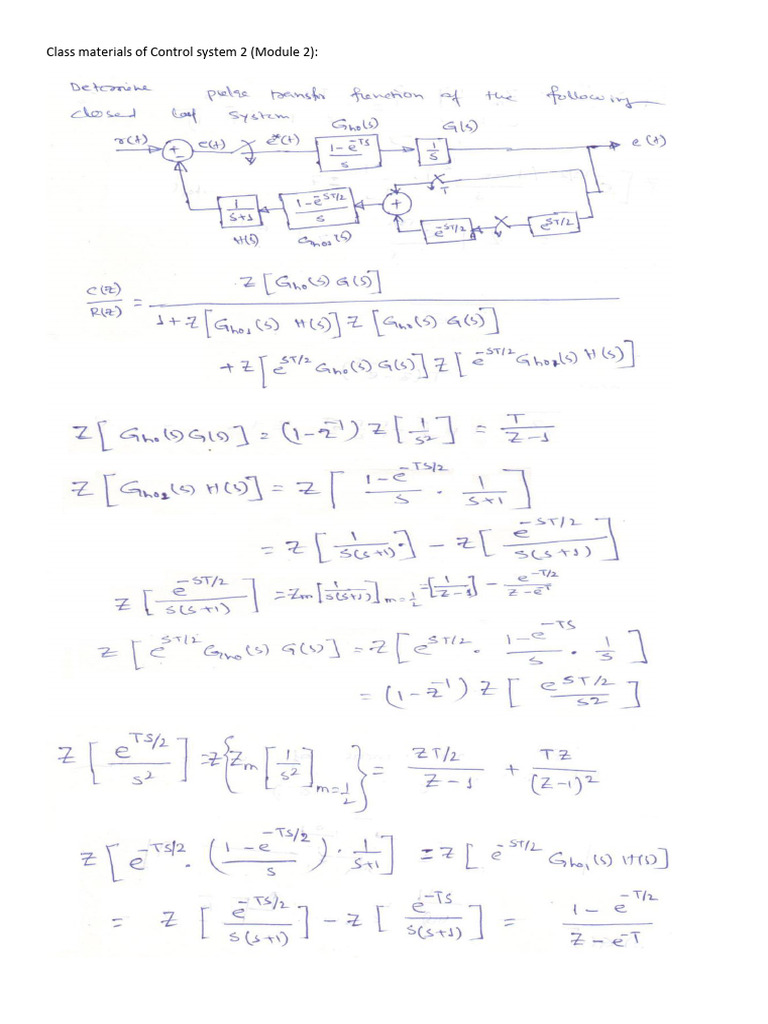 Class materials of Control system 2 (Module 2):
Determine pulse transfr function of the following
closed loop system
Gho(s) G(s)
r(t) + - e(t) e*(t) 1-e^-TS/s 1/s c(t)
T
1/s+1 1-e^-ST/2/s + e^-ST/2 e^ST/2
H(s) Gho2(s)
C(z)/R(z) = Z[Gho(s) G(s)] / 1+Z[Gho1(s) H(s)] Z[Gho(s) G(s)]
+ Z[e^ST/2 Gho(s) G(s)] Z[e^-ST/2 Gho2(s) H(s)]
Z[Gho(s) G(s)] = (1-z^-1) Z[1/s^2] = T/z-1
Z[Gho2(s) H(s)] = Z[1-e^-TS/2/s · 1/s+1]
= Z[1/s(s+1)] - Z[e^-ST/2/s(s+1)]
Z[e^-ST/2/s(s+1)] = Zm[1/s(s+1)]m=1/2 = [1/z-1] - e^-T/2/z-e^-T
Z[e^ST/2 Gho(s) G(s)] = Z[e^ST/2 · 1-e^-TS/s · 1/s]
= (1-z^-1) Z[e^ST/2/s^2]
Z[e^TS/2/s^2] = Z{Zm[1/s^2]m=1/2} = ZT/2/z-1 + TZ/(z-1)^2
Z[e^-TS/2 · (1-e^-TS/2/s) · 1/s+1] = Z[e^-ST/2 Gho1(s) H(s)]
= Z[e^-TS/2/s(s+1)] - Z[e^-TS/s(s+1)] = 1-e^-T/2/z-e^-T